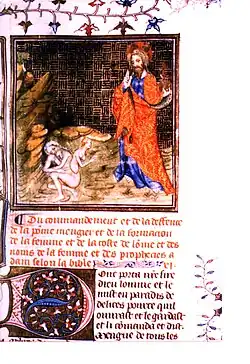 Du commandement et de la deffence
de la pome mengier et de la formacion
de la femme et de la coste de lome et des
noms de la femme et des prophecies a
dam selon la bible vi
Out pora nre sire
Dieu lomme et le
mist en paradis de
delices pource quil
ouvrast et le gardast
et li comanda et dist
mengue de tous les